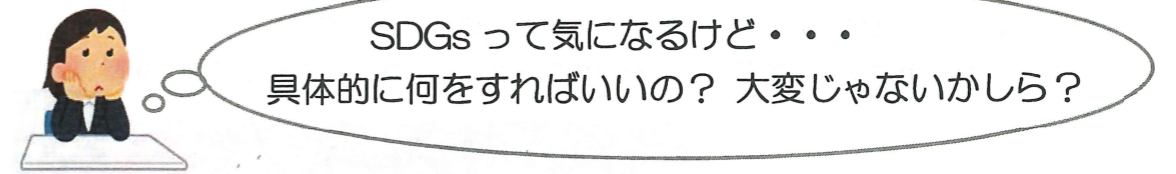 SDGs って気になるけど・・・
具体的に何をすればいいの？ 大変じゃないかしら？